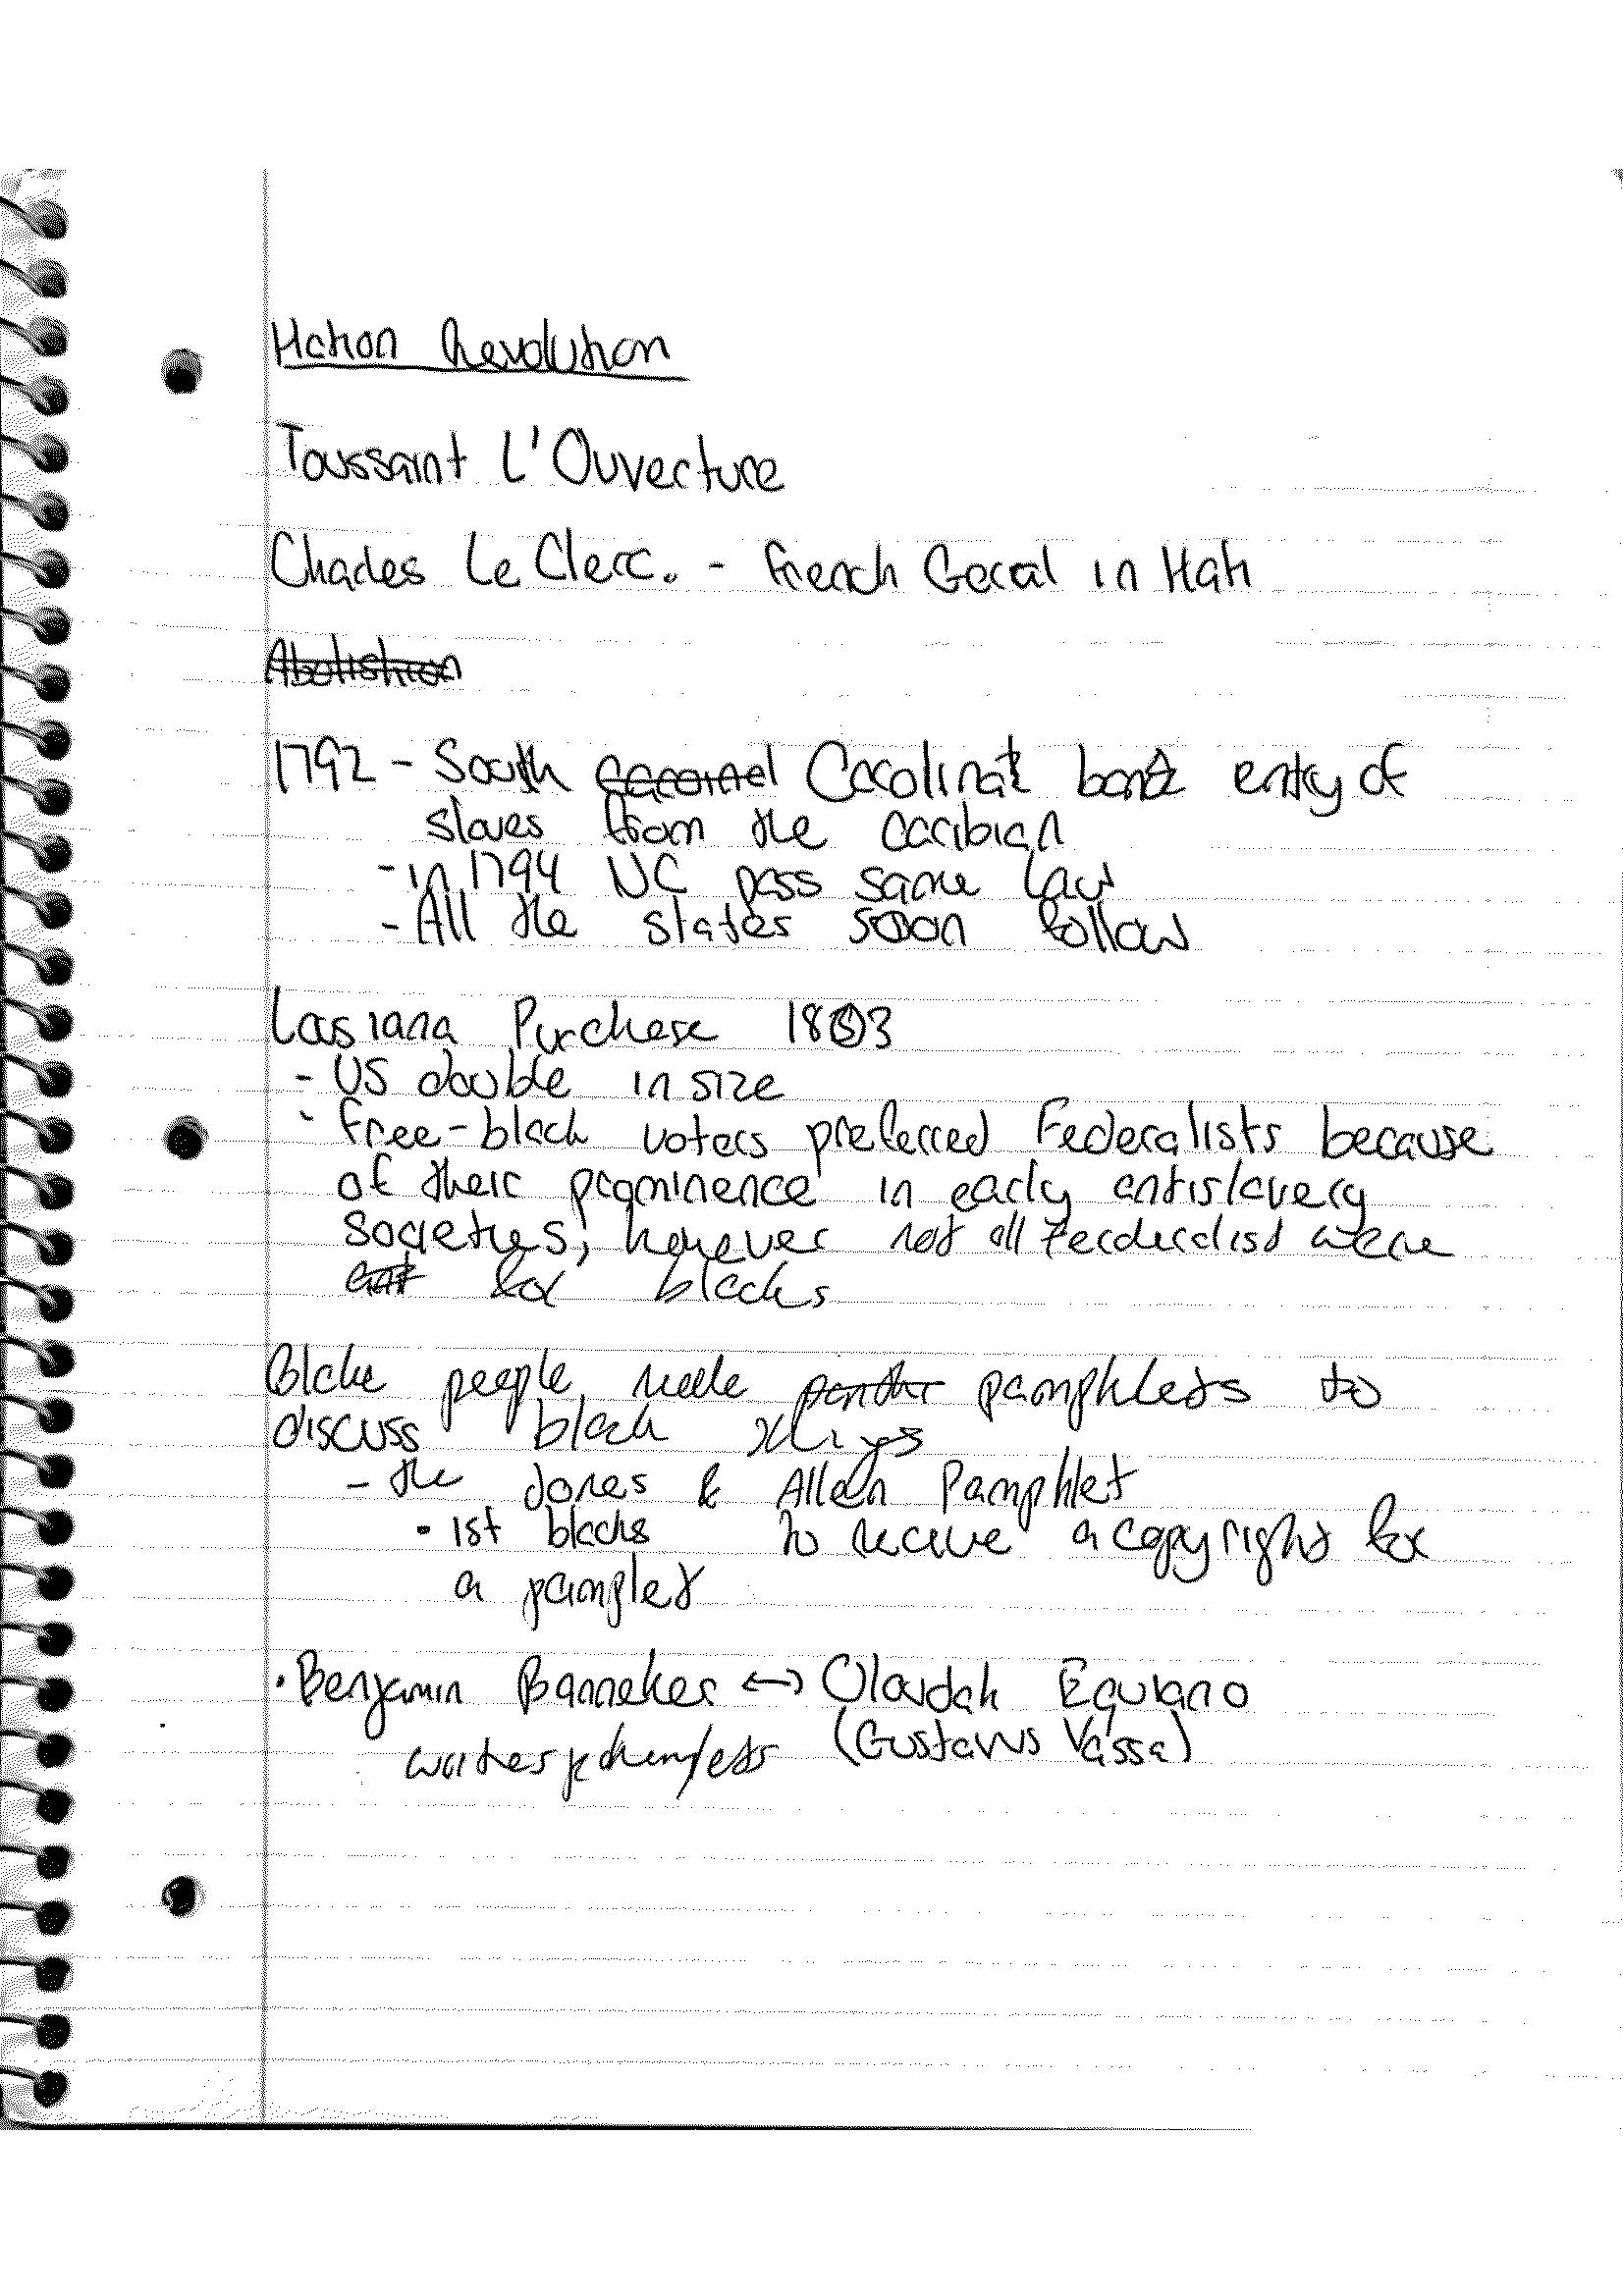 Hation Revolution
Toussaint L'Ouverture
Charles Le Clerc. - French Gecal in Hati
Abolishion
1792 - South Carolina banz entry of
slaves from the Caribian
- in 1794 NC pass same law
- All the states soon follow
Lousiana Purchase 1803
- US double in size
- Free-black voters preferred Federalists because
of their prominence in early antislavery
Societies; however not all Ferderalist were
for blacks
Black people made pamphlets to
discuss black things
- the Jones & Allen Pamphlet
• 1st blacks to recieve a copyright for
a pamplet
• Benjamin Banneker ↔ Olaudah Equiano
(Gustavus Vassa)